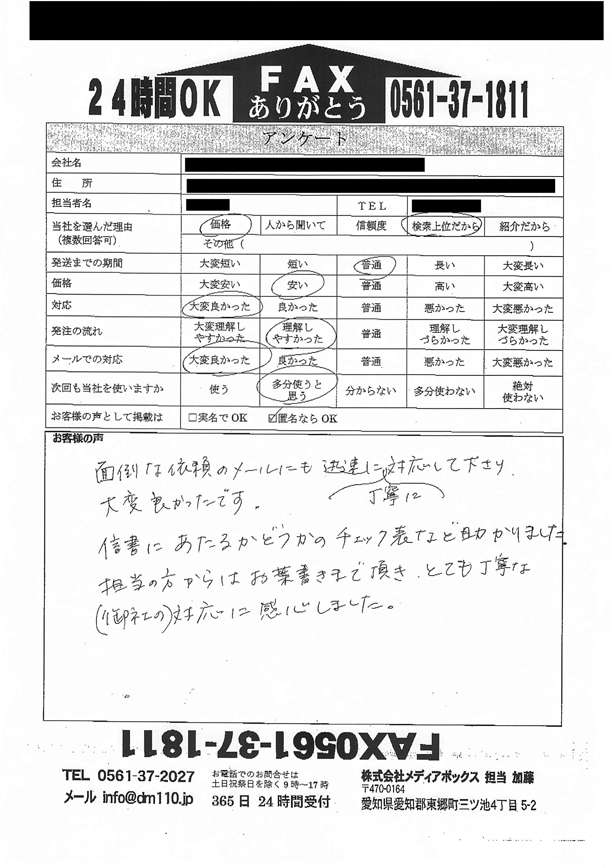 24時間OK
FAX
ありがとう
0561-37-1811
アンケート
会社名
住 所
担当者名 TEL
当社を選んだ理由 (複数回答可) 価格 人から聞いて 信頼度 検索上位だから 紹介だから
その他 ( )
発送までの期間 大変短い 短い 普通 長い 大変長い
価格 大変安い 安い 普通 高い 大変高い
対応 大変良かった 良かった 普通 悪かった 大変悪かった
発注の流れ 大変理解しやすかった 理解しやすかった 普通 理解しづらかった 大変理解しづらかった
メールでの対応 大変良かった 良かった 普通 悪かった 大変悪かった
次回も当社を使いますか 使う 多分使うと思う 分からない 多分使わない 絶対使わない
お客様の声として掲載は □実名でOK ☑匿名ならOK
お客様の声
面倒な依頼のメールにも 迅速に対応して下さり、
丁寧に
大変良かったです。
信書にあたるかどうかのチェック表など助かりました。
担当の方からはお葉書きまで頂き、とても丁寧な
(御社の)対応に感心しました。
FAX0561-37-1811
TEL 0561-37-2027
メール info@dm110.jp
お電話でのお問合せは
土日祝祭日を除く9時～17時
365日24時間受付
株式会社メディアボックス 担当 加藤
〒470-0164
愛知県愛知郡東郷町三ツ池4丁目5-2